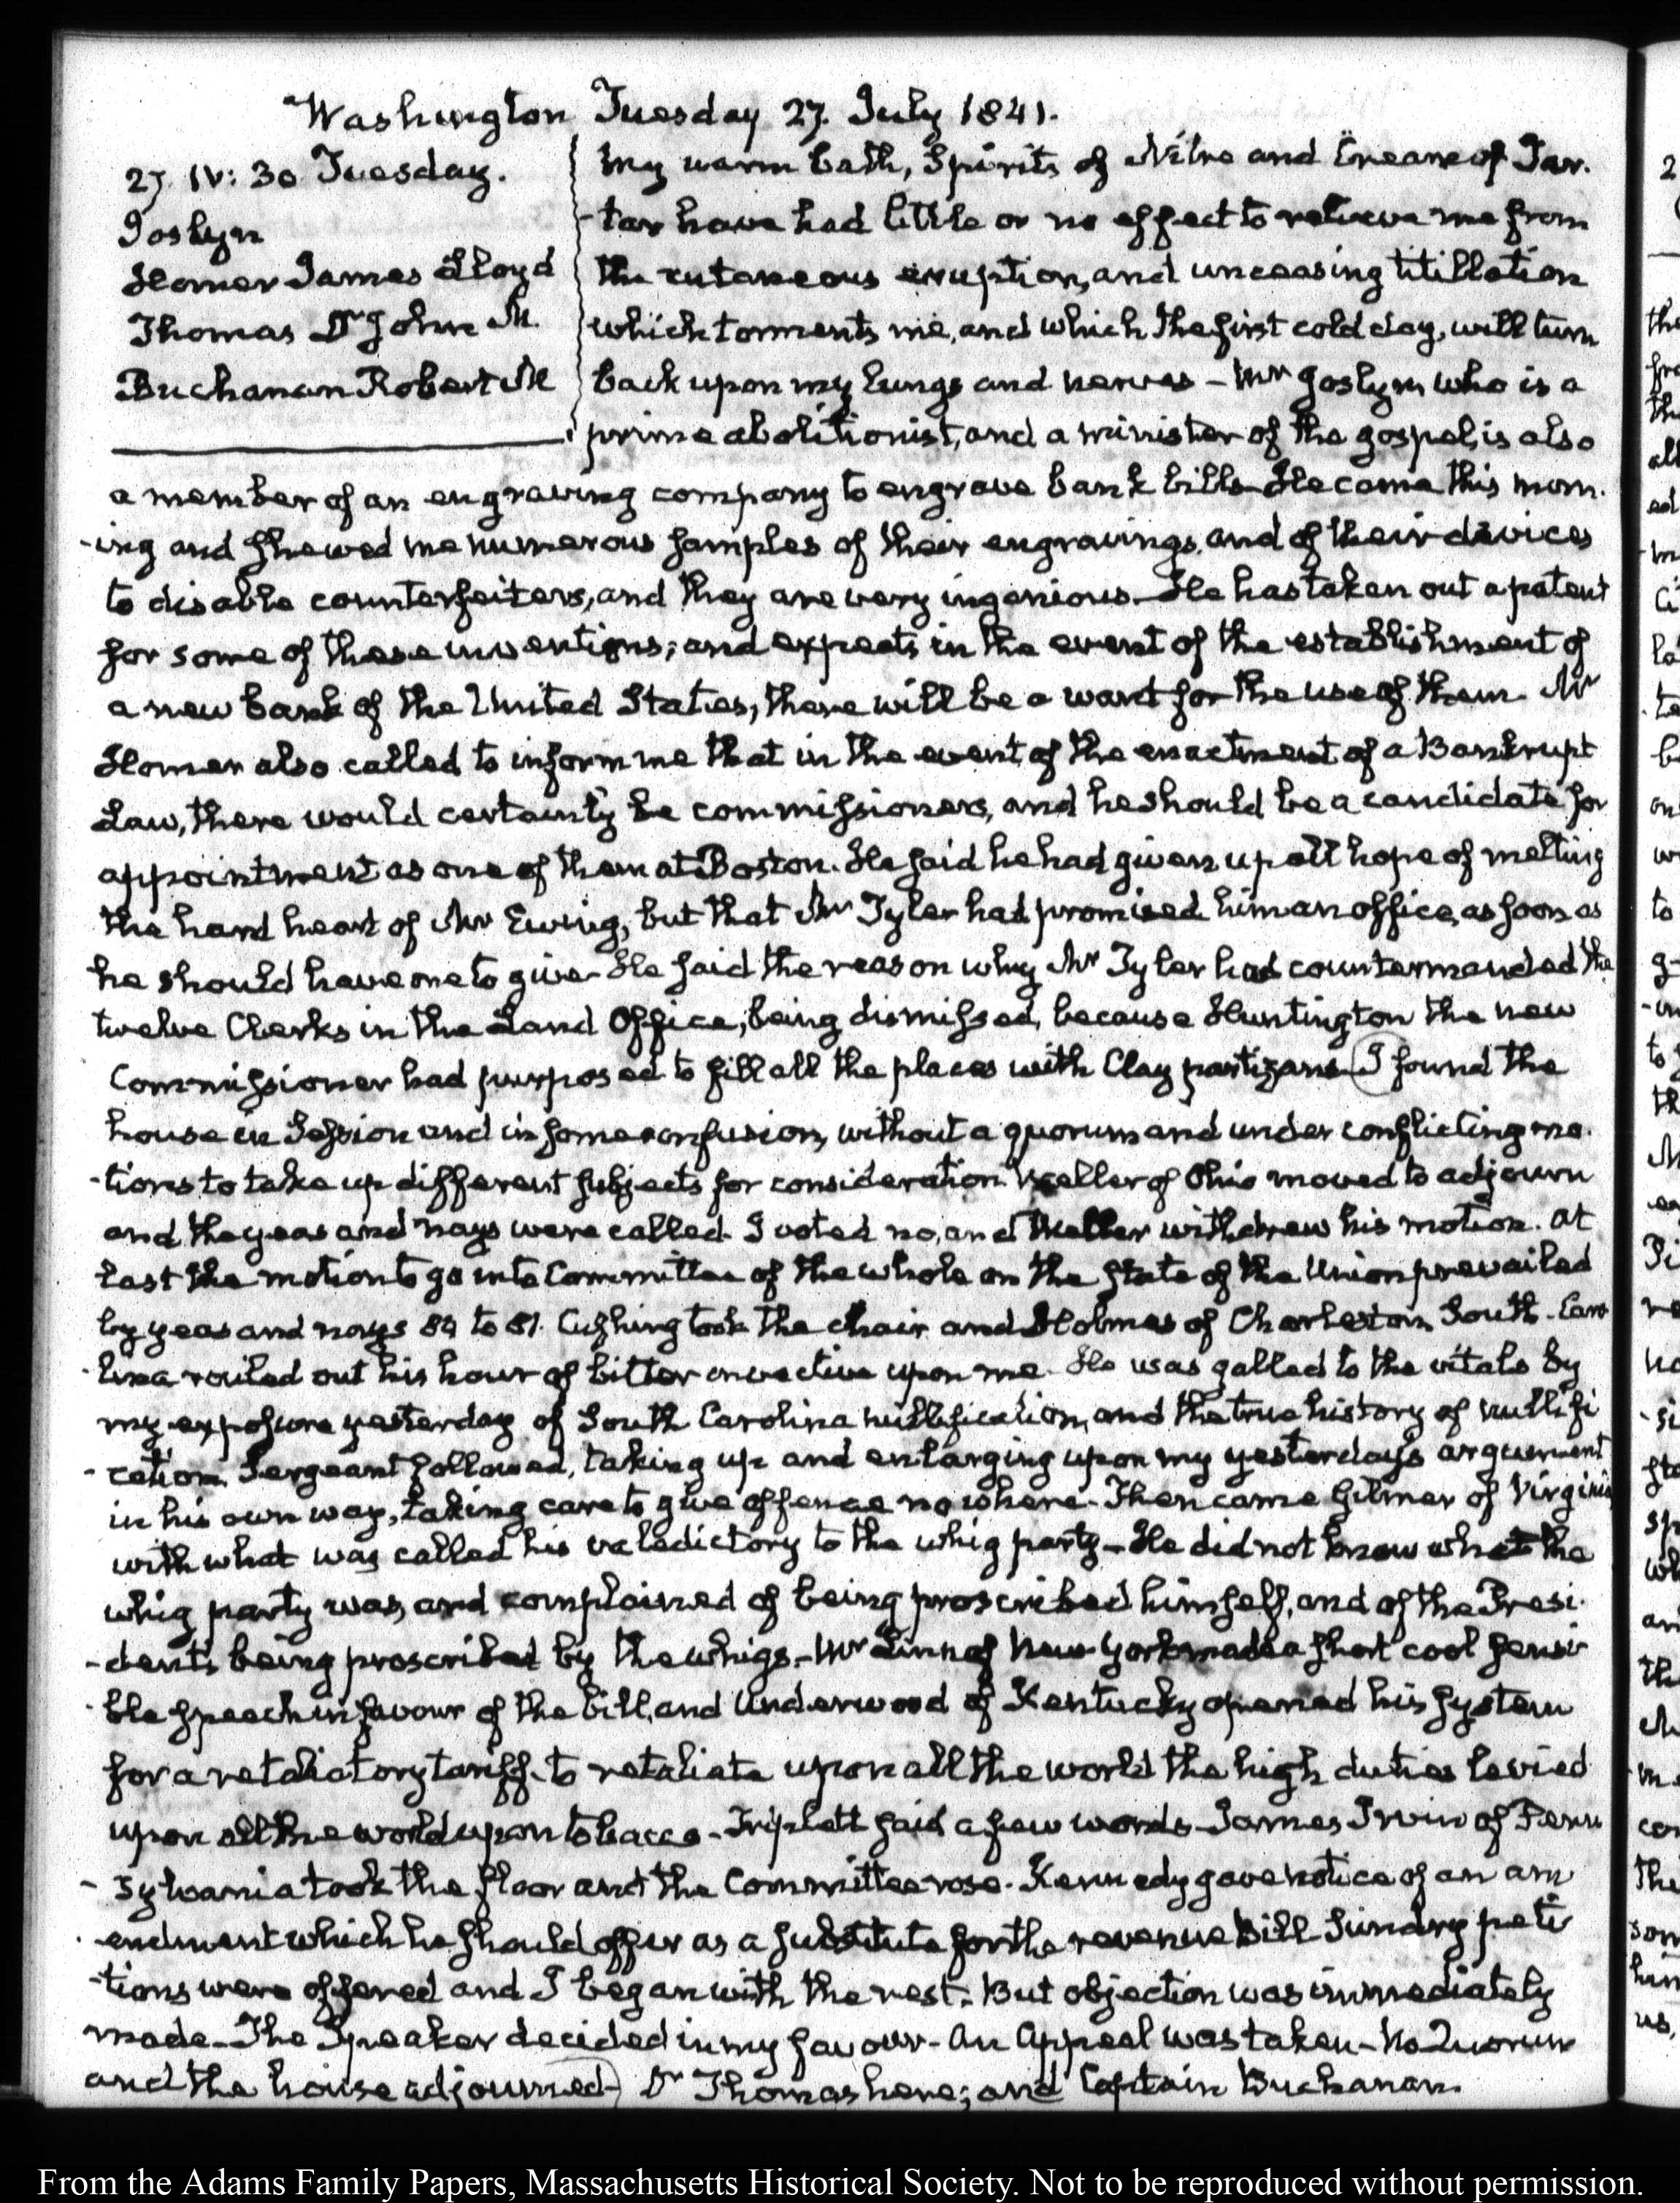 Washington Tuesday 27. July 1841.
27. IV: 30 Tuesday.
Joslyn
Homer James Lloyd
Thomas Dr John M.
Buchanan Robert M
My warm bath, Spirits of Nitre and Cream of Tar-
-tar have had little or no effect to relieve me from
the cutaneous eruption, and unceasing titillation
which torments me, and which the first cold day, will turn
back upon my lungs and nerves — Mr Joslyn who is a
prime abolitionist, and a minister of the gospel, is also
a member of an engraving company to engrave bank bills — He came this morn-
-ing and shewed me numerous samples of their engravings, and of their devices
to disable counterfeiters, and they are very ingenious. He has taken out a patent
for some of these inventions; and expects in the event of the establishment of
a new bank of the United States, there will be a want for the use of them. Mr
Homer also called to inform me that in the event of the enactment of a Bankrupt
Law, there would certainly be commissioners, and he should be a candidate for
appointment as one of them at Boston. He said he had given up all hope of melting
the hard heart of Mr Ewing, but that Mr Tyler had promised him an office, as soon as
he should have one to give — He said the reason why Mr Tyler had countermanded the
twelve Clerks in the Land Office, being dismissed, because Huntington the new
Commissioner had purposed to fill all the places with Clay partizans — I found the
house in Session and in some confusion, without a quorum and under conflicting mo-
-tions to take up different subjects for consideration. Weller of Ohio moved to adjourn
and the yeas and nays were called. I voted no, and Weller withdrew his motion. At
last the motion to go into Committee of the whole on the state of the Union prevailed
by yeas and nays 84 to 81. Cushing took the chair and Holmes of Charleston South-Caro-
-lina railed out his hour of bitter invective upon me. He was galled to the vitals by
my exposure yesterday of South Carolina nullification, and the true history of nullifi-
-cation. Sergeant followed, taking up and enlarging upon my yesterday's argument
in his own way, taking care to give offence no where — Then came Gilmer of Virginia
with what was called his valedictory to the whig party — He did not know what the
whig party was, and complained of being proscribed himself, and of the Presi-
-dent's being proscribed by the whigs. — Mr Linn of New-York made a short cool sensi-
-ble speech in favour of the bill, and Underwood of Kentucky opened his system
for a retaliatory tariff, to retaliate upon all the world the high duties levied
upon all the world upon tobacco — Triplett said a few words — James Irvin of Penn-
-sylvania took the floor and the Committee rose. Kennedy gave notice of an am-
-endment which he should offer as a substitute for the revenue Bill Sundry peti-
-tions were offered and I began with the rest. But objection was immediately
made — The Speaker decided in my favour — An Appeal was taken — No Quorum
and the house adjourned — Dr Thomas here; and Captain Buchanan.
From the Adams Family Papers, Massachusetts Historical Society. Not to be reproduced without permission.